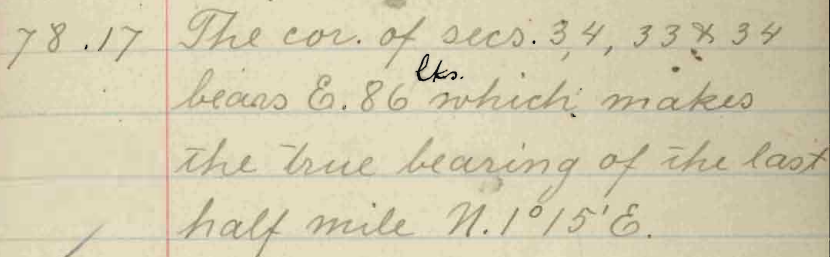 78.17 The cor. of secs. 3, 4, 33 & 34
lks.
bears E. 86 which makes
the true bearing of the last
half mile N. 1° 15' E.